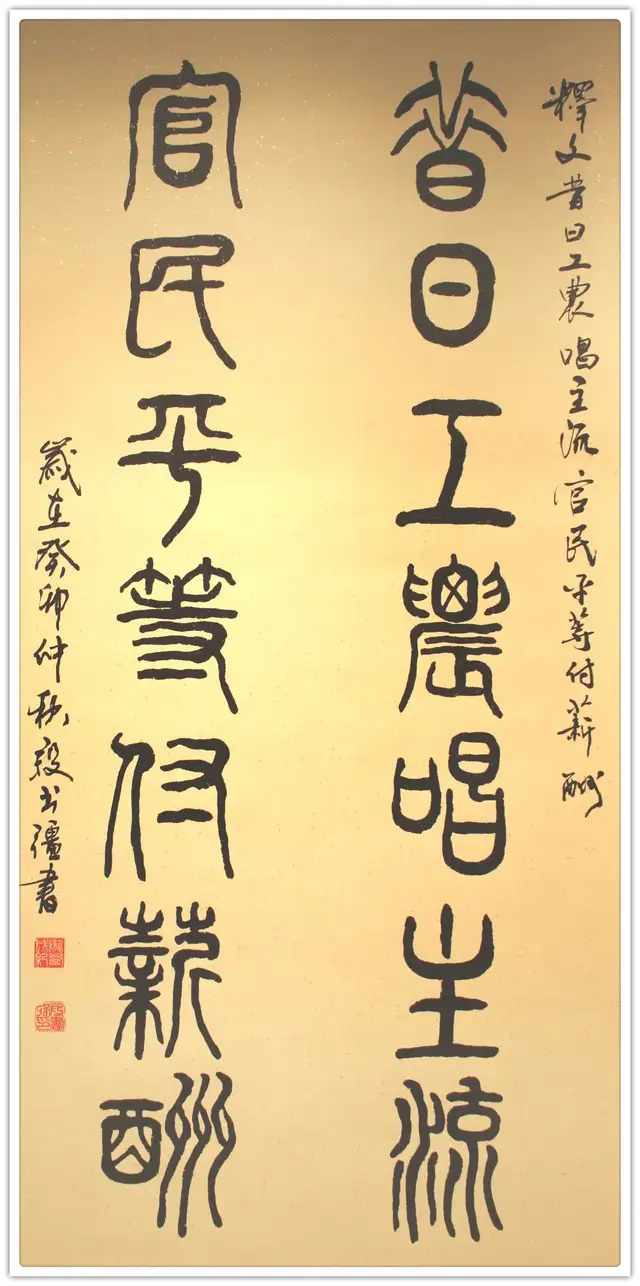 釋文昔日工農唱主流官民平等付薪酬
昔日工農唱主流
官民平等付薪酬
歲在癸卯仲秋段书疆書